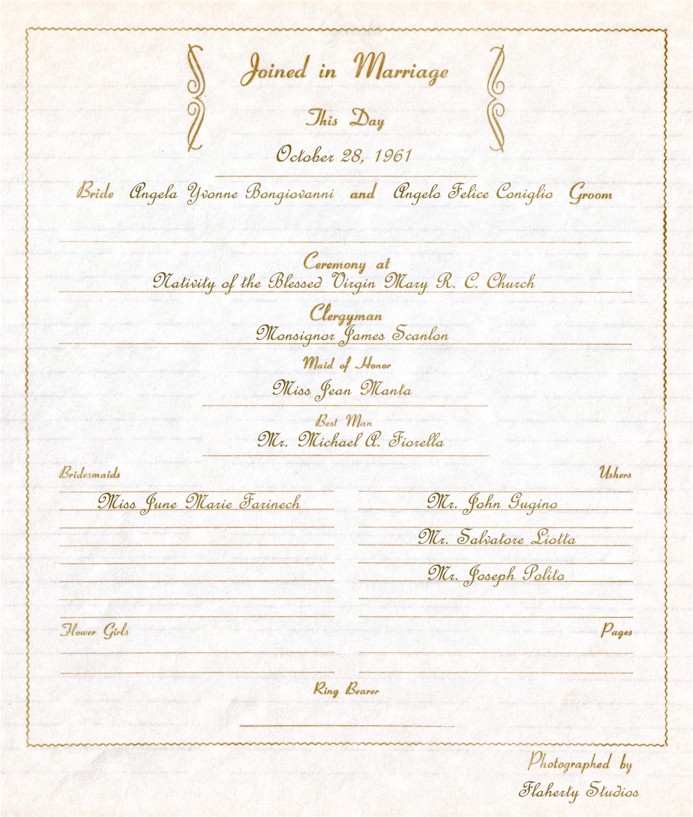 Joined in Marriage
This Day
October 28, 1961
Bride Angela Yvonne Bongiovanni and Angelo Felice Coniglio Groom
Ceremony at
Nativity of the Blessed Virgin Mary R. C. Church
Clergyman
Monsignor James Scanlon
Maid of Honor
Miss Jean Manta
Best Man
Mr. Michael A. Fiorella
Bridesmaids Ushers
Miss June Marie Farinech Mr. John Gugino
Mr. Salvatore Liotta
Mr. Joseph Polito
Flower Girls Pages
Ring Bearer
Photographed by
Flaherty Studios